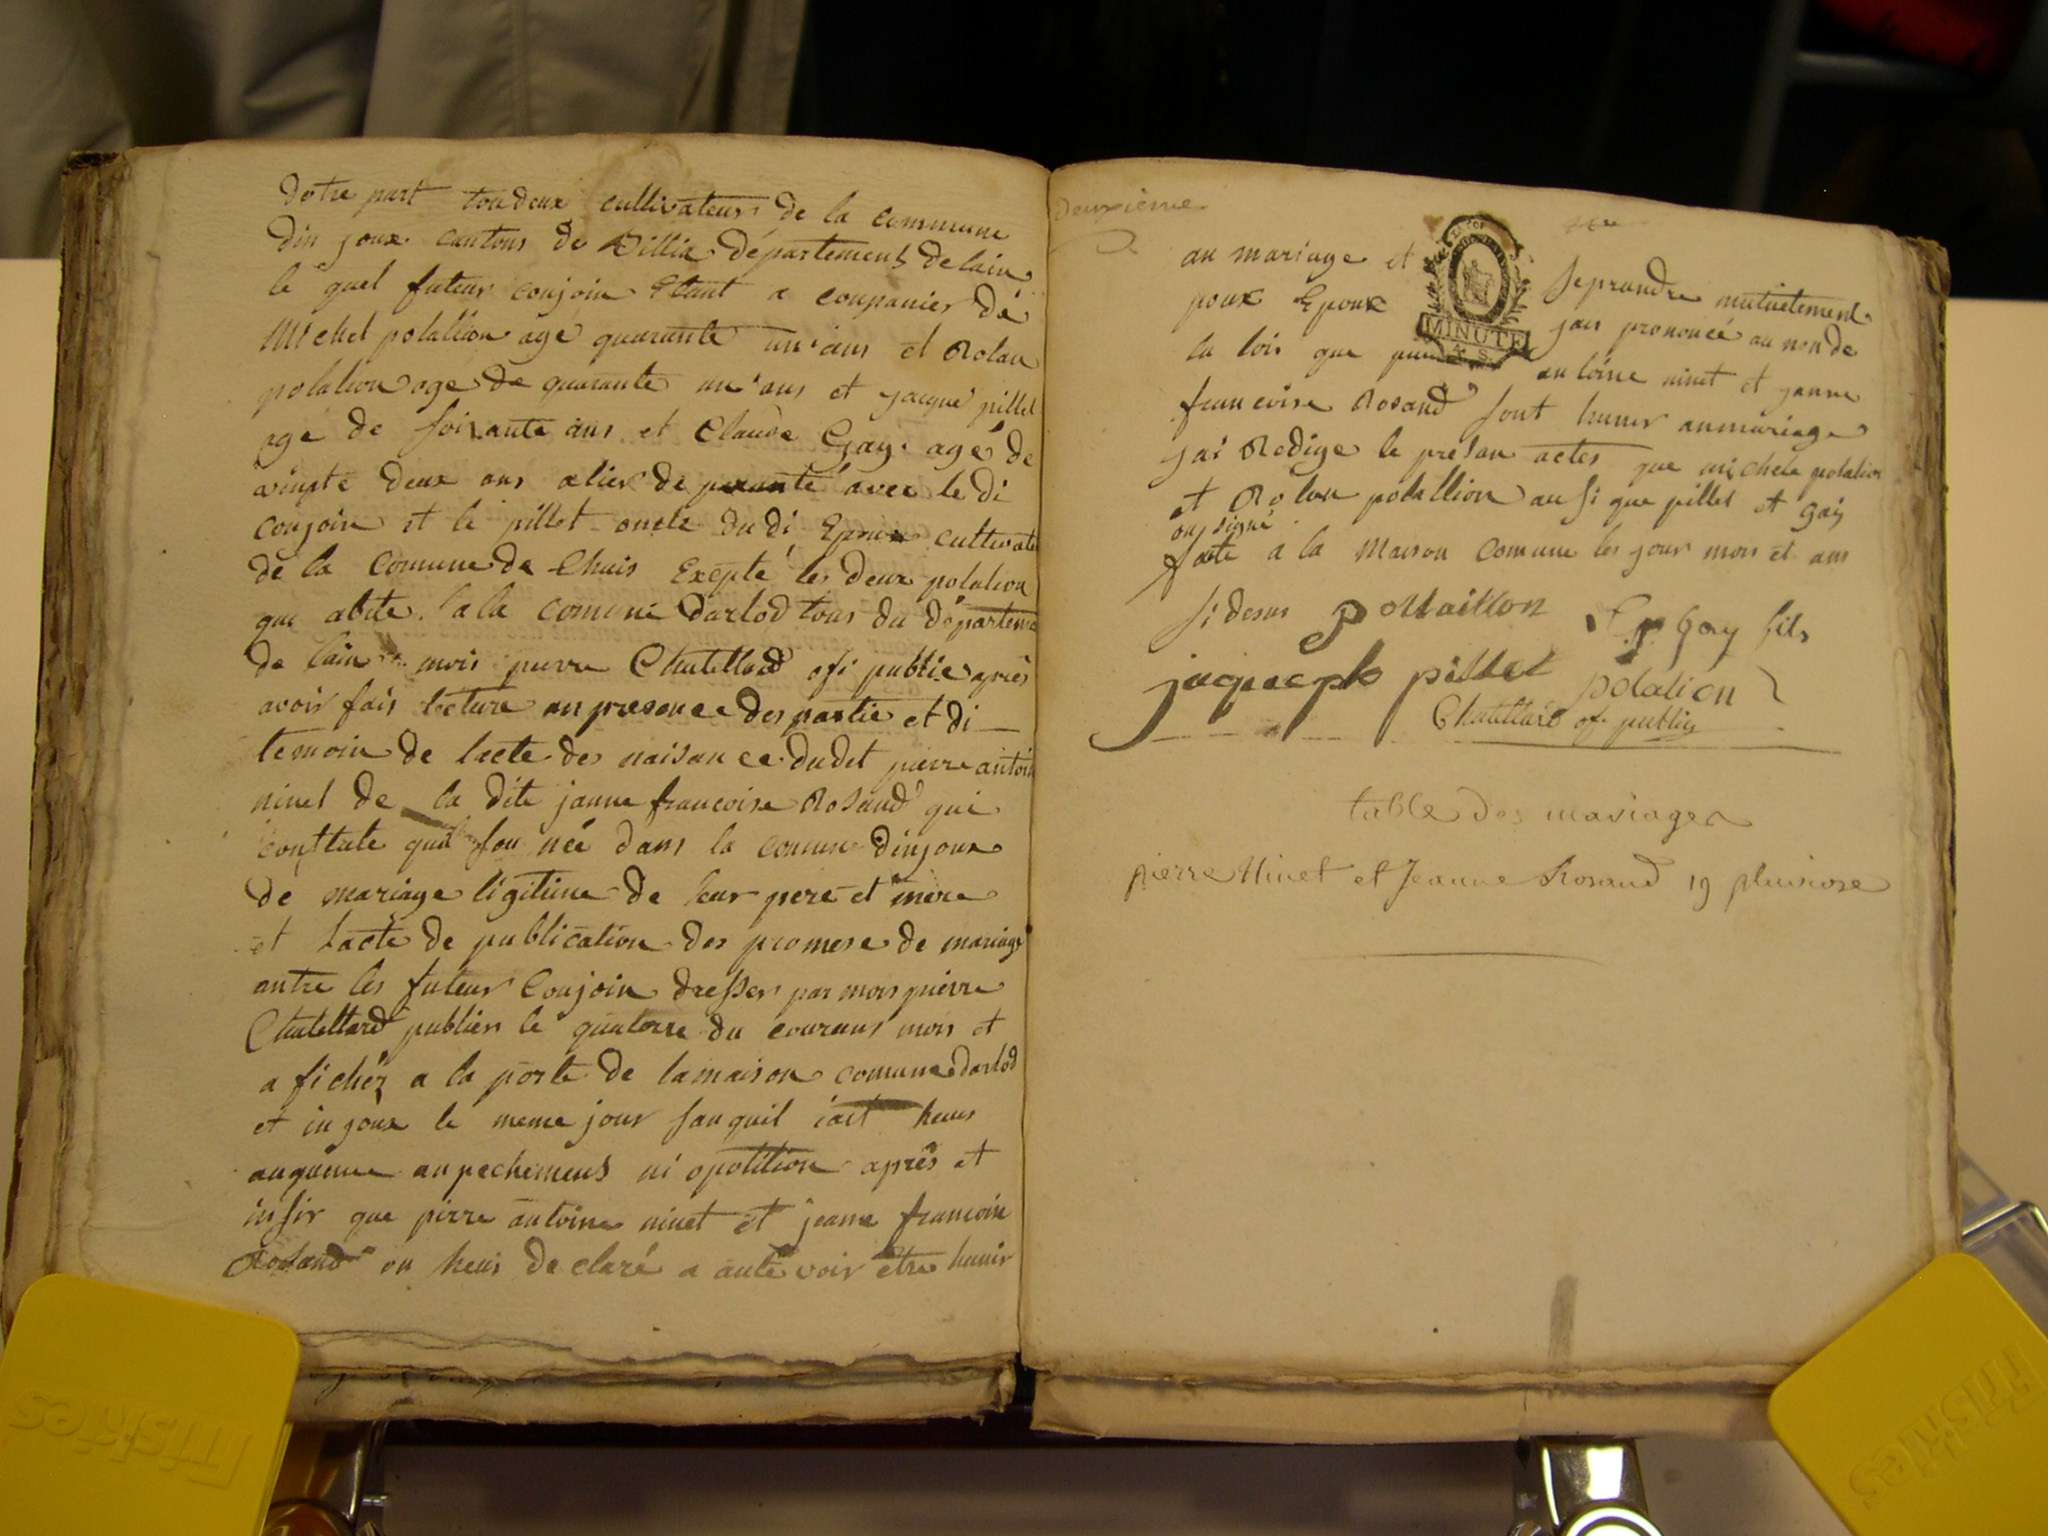 dotre part toudeux cultivateur de la commune
din joux cantons de Billia département delain
le quel futeur conjoin Etant a conpanier dé
Michel polallion agé quarante un ans et Rolan
polation age de quarante un ans et jacque pillet
age de soixante ans et Claude Gay agé de
vingte deux ans alier de paranté avec le di
conjoin et le pillet oncle du di Epoux cultivate
de la Comune de Chais Exepté les deux polation
que abite a la comune darlod tous du départem
de lain mois pierre Chatellard ofi public après
avoir fais lecture an presence des partie et di
temoin de lacte des naisance dudet pierre antoin
ninet de la dite janne francoise Rosand qui
constate quil sou née dans la comune dinjoux
de mariage ligitime de leur pere et mere
et lacte de publication des promese de mariage
antre les futeur Conjoin dresser par mois pierre
Chatellard publier le quatorze du courans mois et
a ficher a la porte de lamaison comune darlod
et injoux le meme jour san quil iait heus
auqueune anpechemens ni opotition après et
insir que pierre antoine ninet et jeanne francoise
Rosand on heus declaré a aute voir etre hunir
deuxieme
au mariage et se prandre mutuelement
poux Epoux jais prononcé au non de
la lois que antoine ninet et janne
francoise Rosand sont hunir au mariage
jai Redige le présan actes que michele polation
et Rolan polallion au si que pillet et gay
on signé
faite a la Maison Comune les jour mois et ans
si desus pollaillon gay fils
jaqueeph pillet polalion
Chatellard of public
MINUTE
4. S.
table des mariages
pierre Ninet et Jeanne Rosand 19 pluviose
Friskies
Friskies